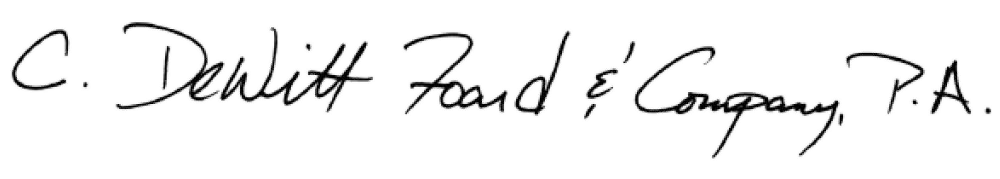 C. DeWitt Foard & Company, P.A.